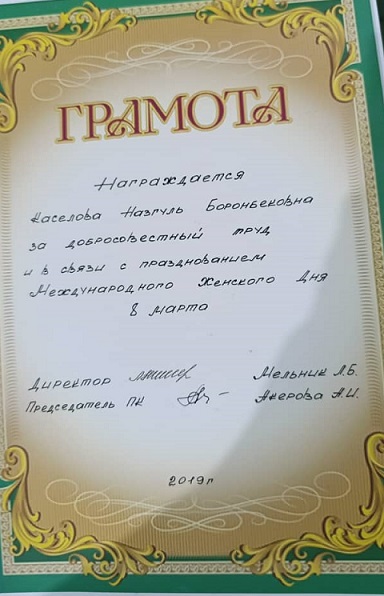 ГРАМОТА
Награждается
Каселова Назгуль Боронбековна
за добросовестный труд
и в связи с празднованием
Международного Женского Дня
8 марта
Директор Мельник Л.Б.
Председатель ПК Акерова А.И.
2019г